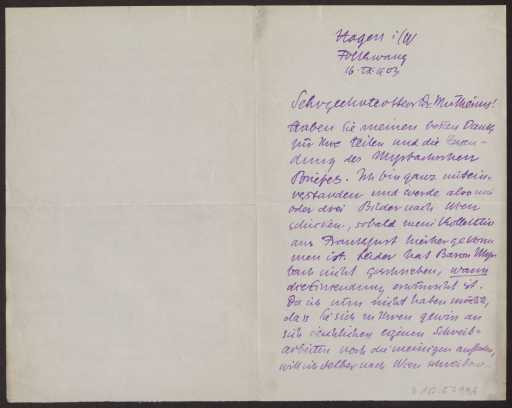 Hagen i/W
Folkwang
16. IX. 03
Sehr geehrter Herr Dr. Muthesius!
Haben Sie meinen besten Dank
für Ihre Zeilen und die Einsen-
dung des Myrbachschen
Briefes. Ich bin ganz mit ein-
verstanden und werde also zwei
oder drei Bilder nach Wien
schicken, sobald meine Kollektion
aus Frankfurt hierher gekom
men ist. Leider hat Baron Myr-
bach nicht geschrieben, wann
die Einsendung erwünscht ist.
Da ich nun nicht haben möchte,
dass Sie sich zu Ihren gewiss an
sich reichlichen eigenen Schreib-
arbeiten noch die meinigen aufladen,
will ich selber nach Wien schreiben.